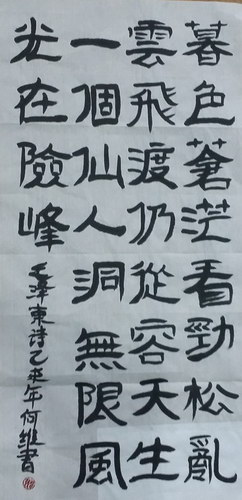 暮色蒼茫看勁松亂
雲飛渡仍從容天生
一個仙人洞無限風
光在險峰
毛澤東詩乙未年何維書